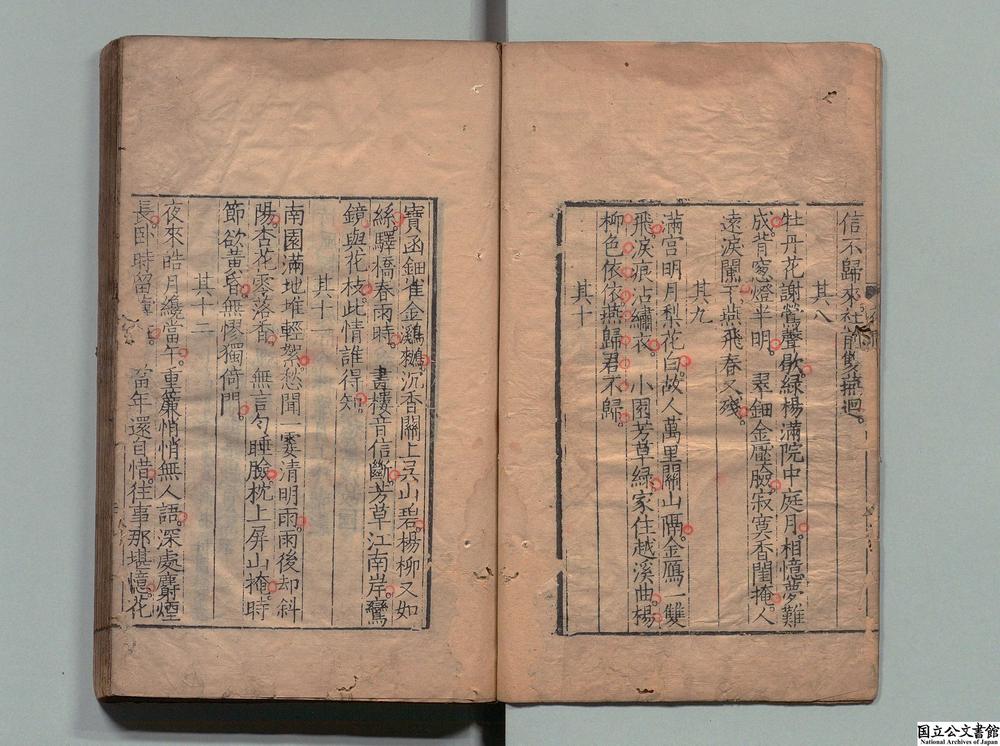 信不歸來社前雙燕迴。
其八
牡丹花謝鶯聲歇。綠楊滿院中庭月。相憶夢難
成。背窓燈半明。　翠鈿金壓臉。寂寞香閨掩。人
遠淚闌干。燕飛春又殘。
其九
滿宫明月梨花白。故人萬里關山隔。金鴈一雙
飛。淚痕沾繡衣。　小園芳草綠。家住越溪曲。楊
柳色依依。燕歸君不歸。
其十
寶函鈿雀金鸂鶒。沉香關上吳山碧。楊柳又如
絲。驛橋春雨時。　畫樓音信斷。芳草江南岸。鸞
鏡與花枝。此情誰得知。
其十一
南園滿地堆輕絮。愁聞一霎清明雨。雨後却斜
陽。杏花零落香。　無言勻睡臉。枕上屏山掩。時
節欲黃昏。無憀獨倚門。
其十二
夜來皓月纔當午。重簾悄悄無人語。深處麝煙
長。臥時留　　當年還自惜。往事那堪憶。花
国立公文書館
National Archives of Japan